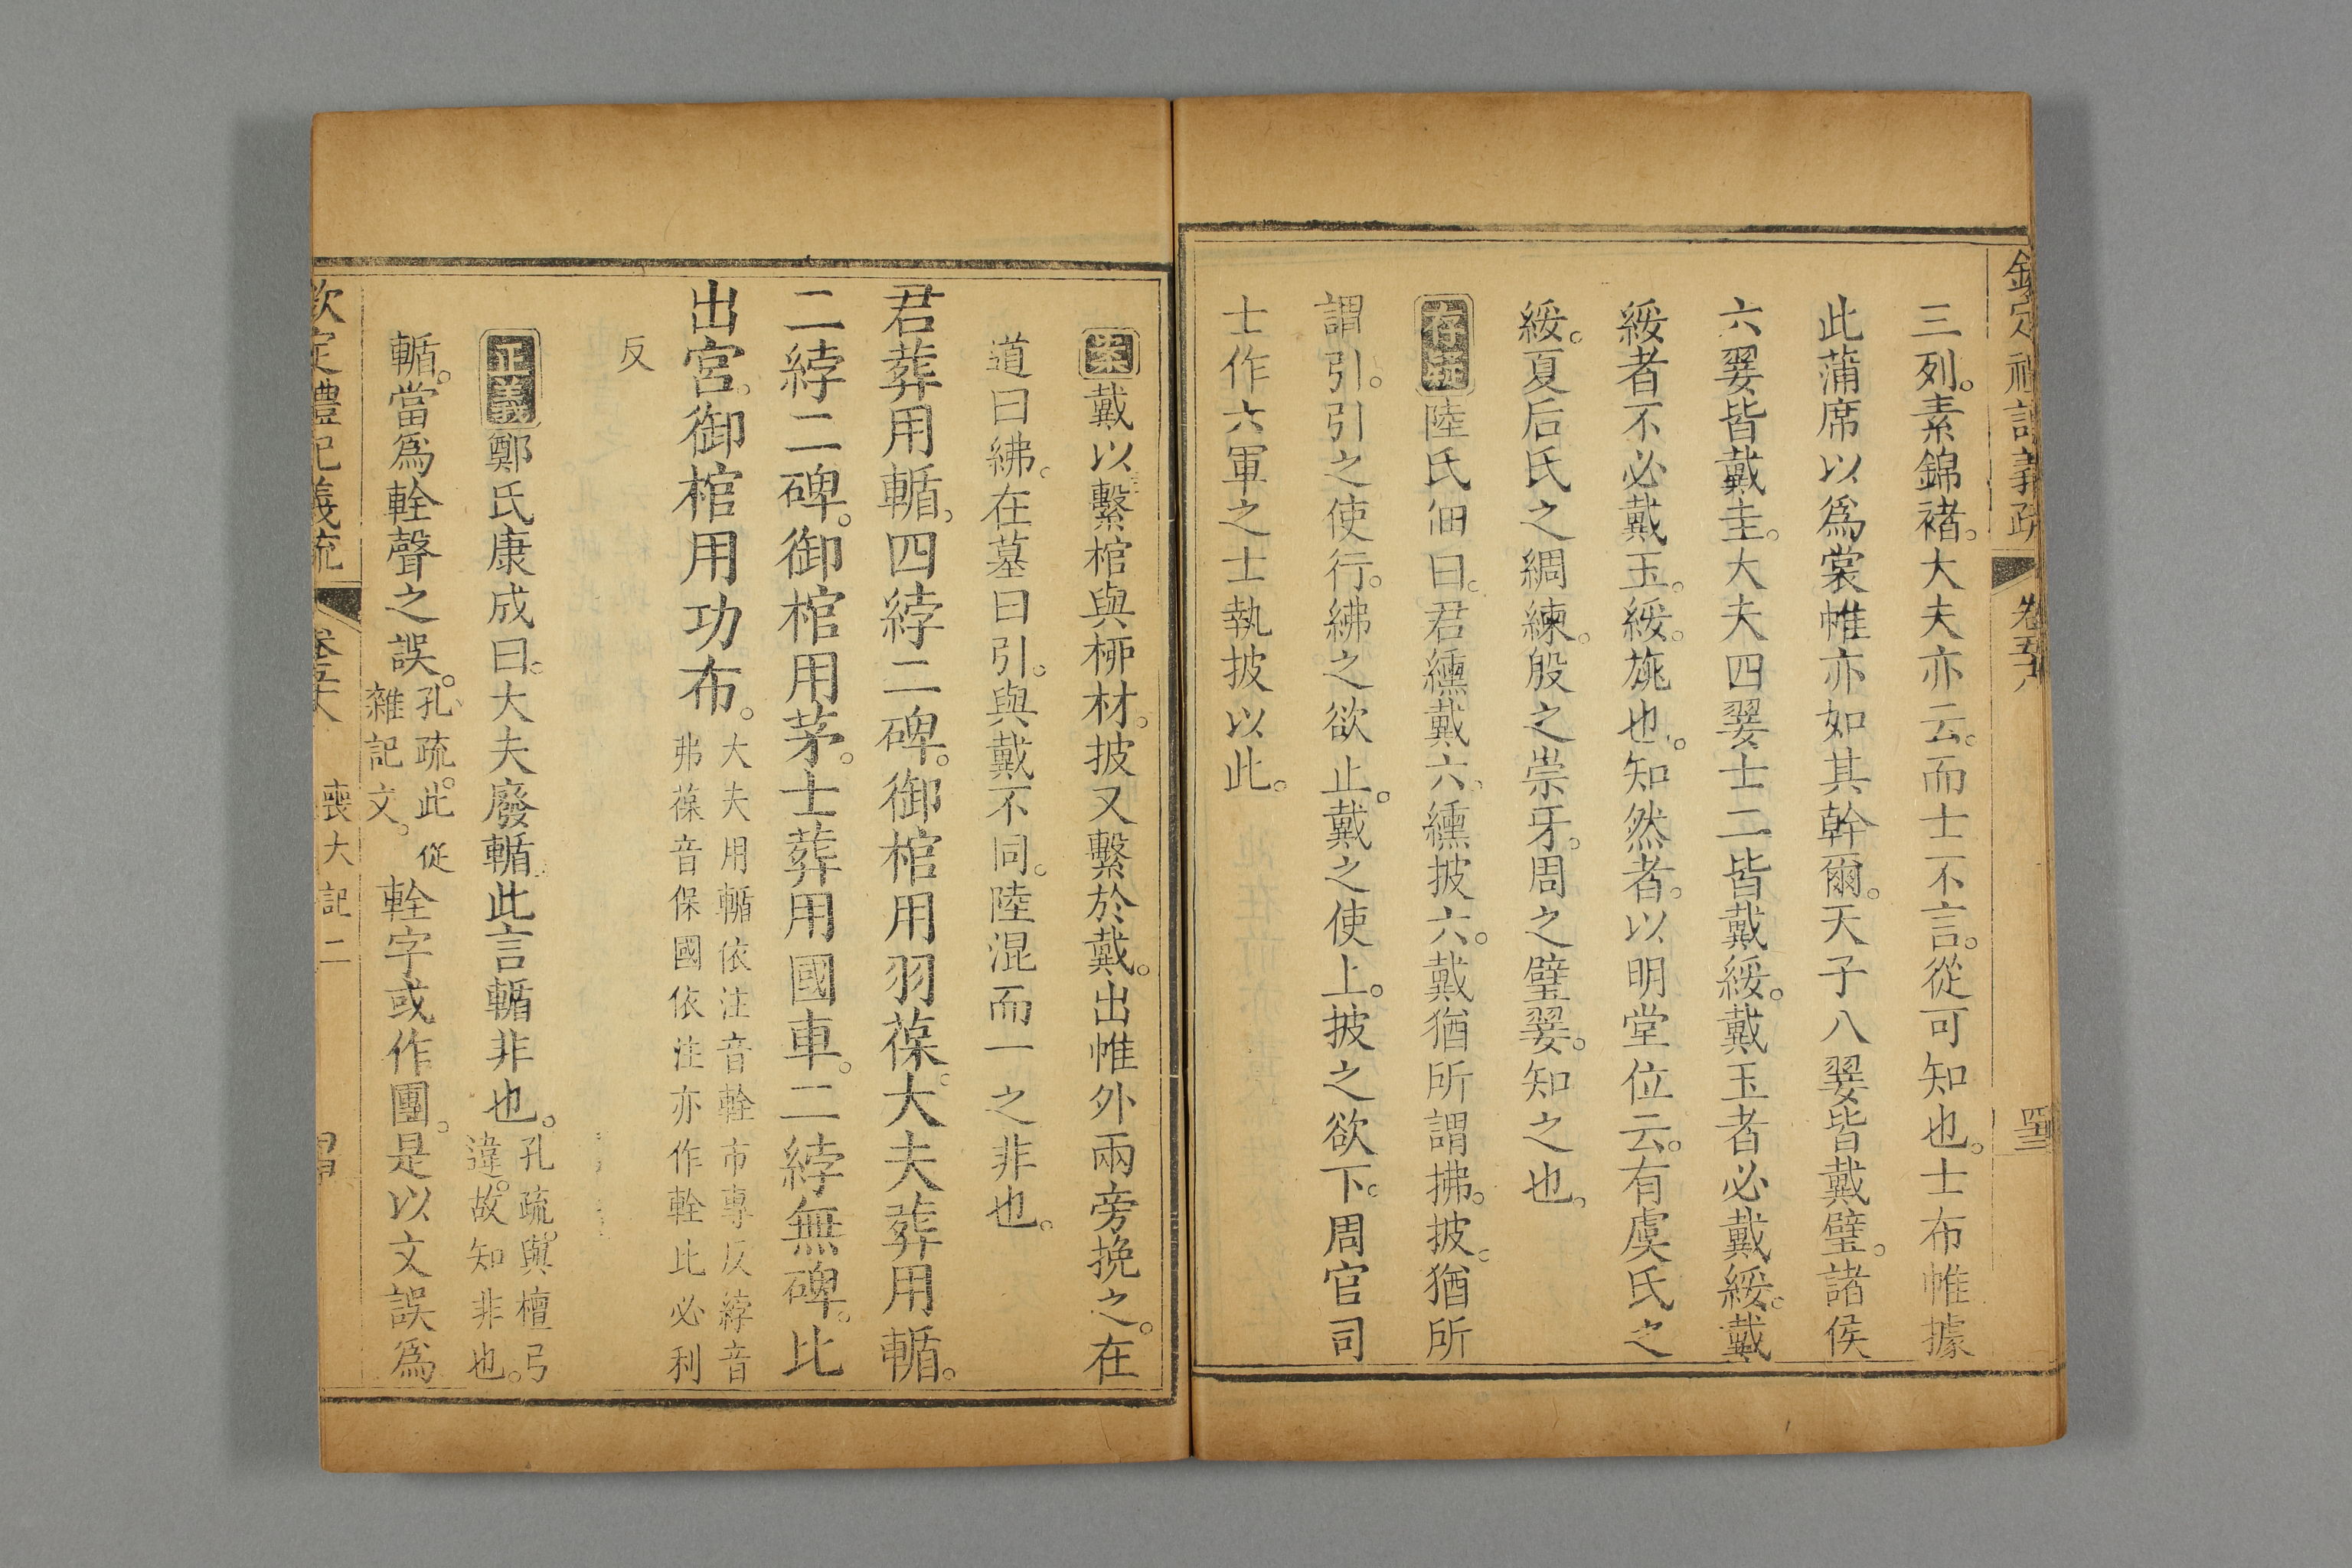 欽定禮記義疏 卷五十八
三列。素錦褚。大夫亦云。而士不言。從可知也。士布帷據
此蒲席以爲裳帷亦如其幹爾。天子八翣皆戴璧。諸侯
六翣皆戴圭。大夫四翣士二皆戴綏。戴玉者必戴綏。戴
綏者不必戴玉。綏。旄也。知然者。以明堂位云。有虞氏之
綏。夏后氏之綢練。殷之崇牙。周之璧翣。知之也。
存疑 陸氏佃曰。君纁戴六。纁披六。戴猶所謂拂。披。猶所
謂引。引之使行。紼之欲止。戴之使上。披之欲下。周官司
士作六軍之士執披以此。
案 戴以繫棺與桺材。披又繫於戴。出帷外兩旁挽之。在
道曰紼。在墓曰引。與戴不同。陸混而一之非也。
君葬用輴。四綍二碑。御棺用羽葆。大夫葬用輴。
二綍二碑。御棺用茅。士葬用國車。二綍無碑。比
出宮。御棺用功布。大夫用輴依注音輇市專反綍音
弗葆音保國依注亦作輇比必利
反
正義 鄭氏康成曰。大夫廢輴此言輴非也。孔疏。與檀弓
違。故知非也。
輴。當爲輇聲之誤。孔疏。此從
雜記文。
輇字或作團。是以文誤爲
欽定禮記義疏 卷五十八 喪大記二